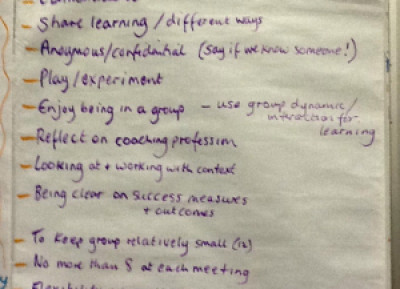 - Share learning / different ways
- Anonymous/confidential (Say if we know someone!)
- Play/experiment
- Enjoy being in a group - use group dynamic/
interaction for
learning
- Reflect on coaching profession
- Looking at + working with context
- Being clear on success measures
+ outcomes
- To keep group relatively small (12)
- No more than 8 at each meeting